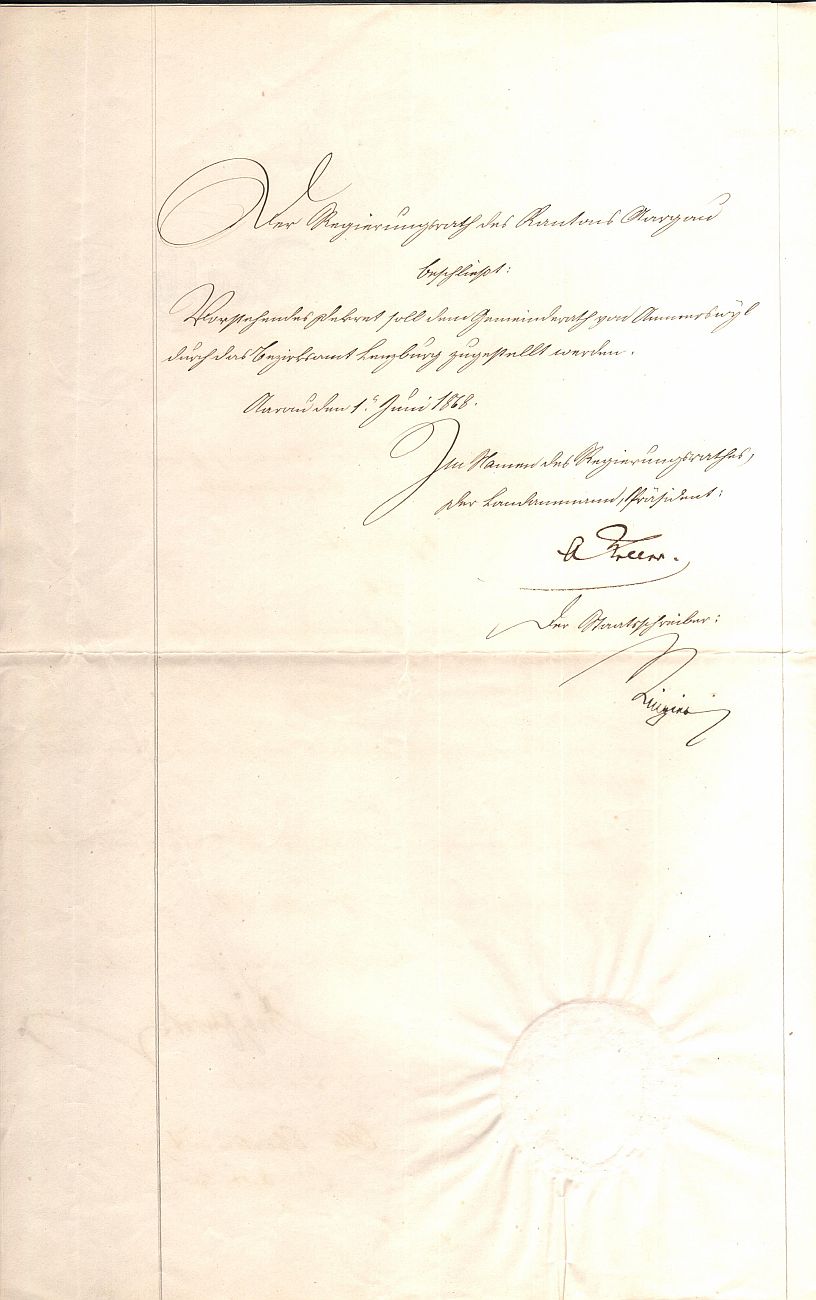 Der Regierungsrath des Kantons Aargau
beschließt:
Vorstehendes Dekret soll dem Gemeinderath von Ammerswyl
durch das Bezirksamt Lenzburg zugestellt werden.
Aarau den 1. Juni 1868.
Im Namen des Regierungsrathes,
Der Landammann, Präsident:
A Keller.
Der Staatsschreiber: